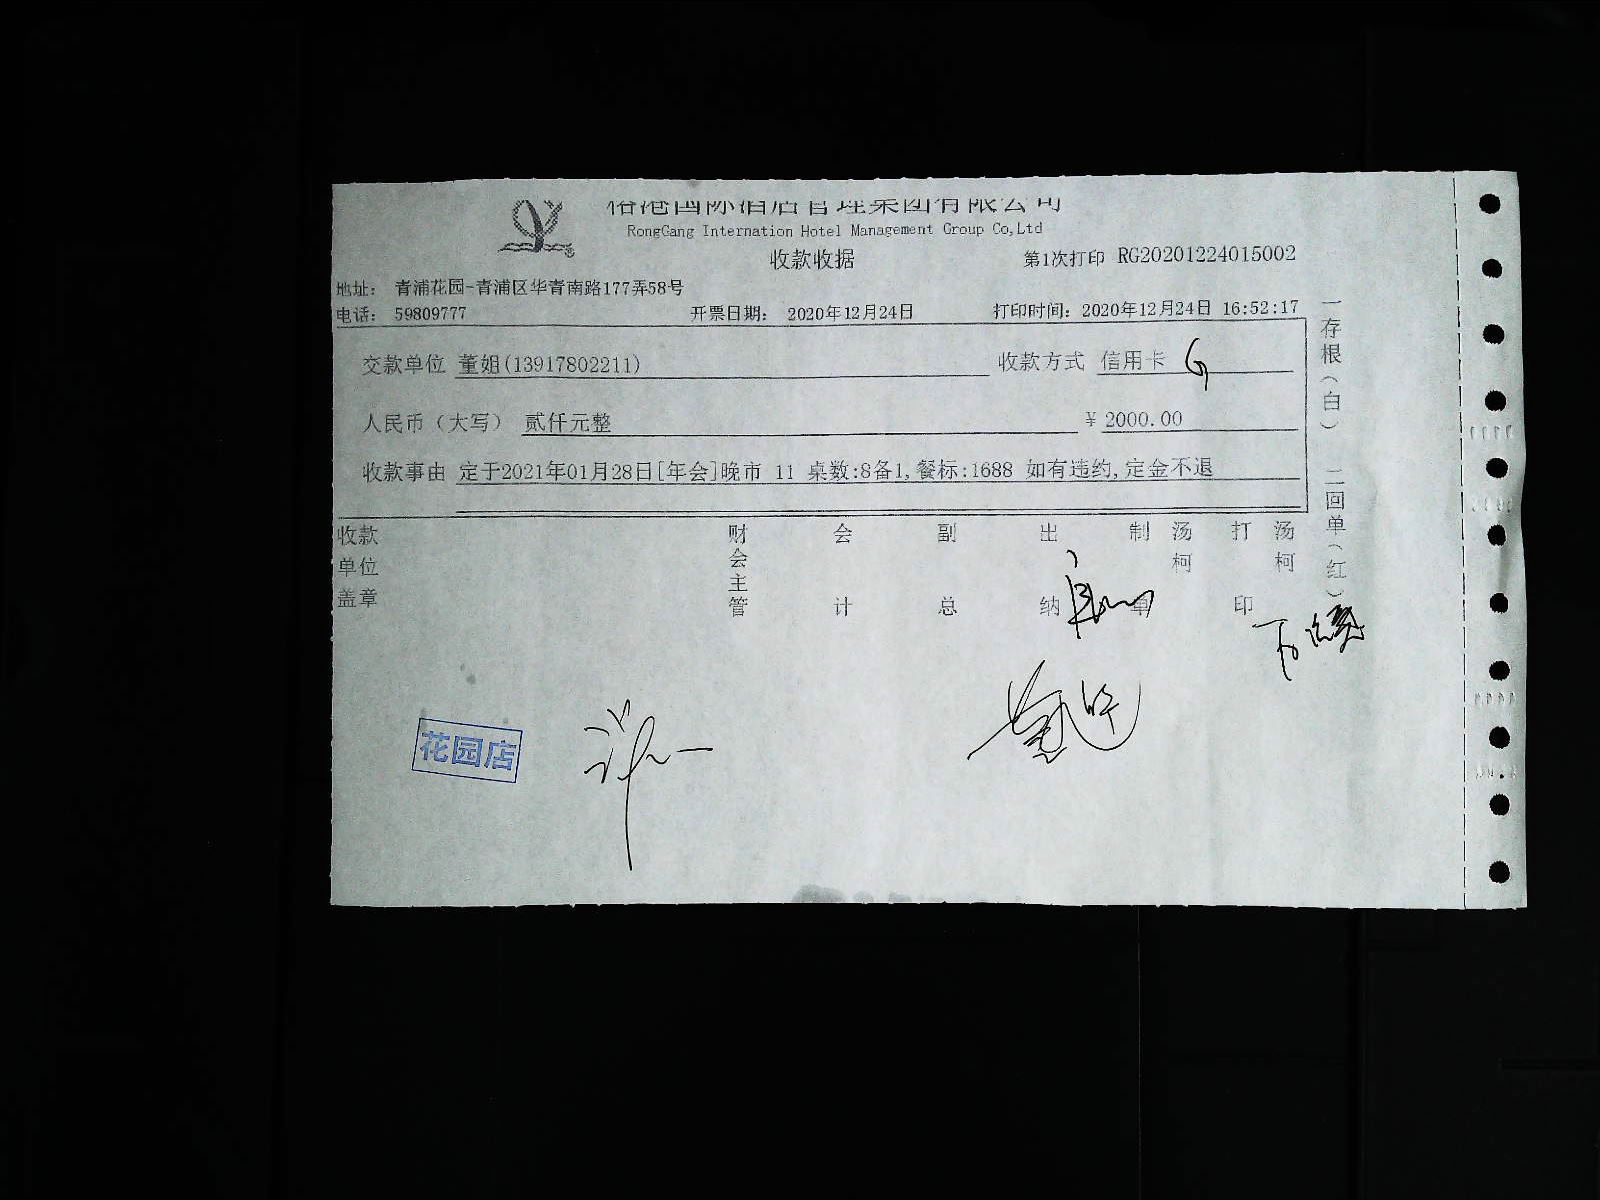 国际酒店管理集团有限公司
RongGang Internation Hotel Management Group Co,Ltd
收款收据
第1次打印 RG20201224015002
地址: 青浦花园-青浦区华青南路177弄58号
电话: 59809777 开票日期: 2020年12月24日 打印时间: 2020年12月24日 16:52:17
交款单位 董姐(13917802211) 收款方式 信用卡 G
人民币(大写) 贰仟元整 ¥ 2000.00
收款事由 定于2021年01月28日[年会]晚市 11 桌数:8备1,餐标:1688 如有违约,定金不退
收款单位盖章 财会主管 会计 副总 出纳 制单 汤柯 打印 汤柯
一存根(白) 二回单(红)
花园店